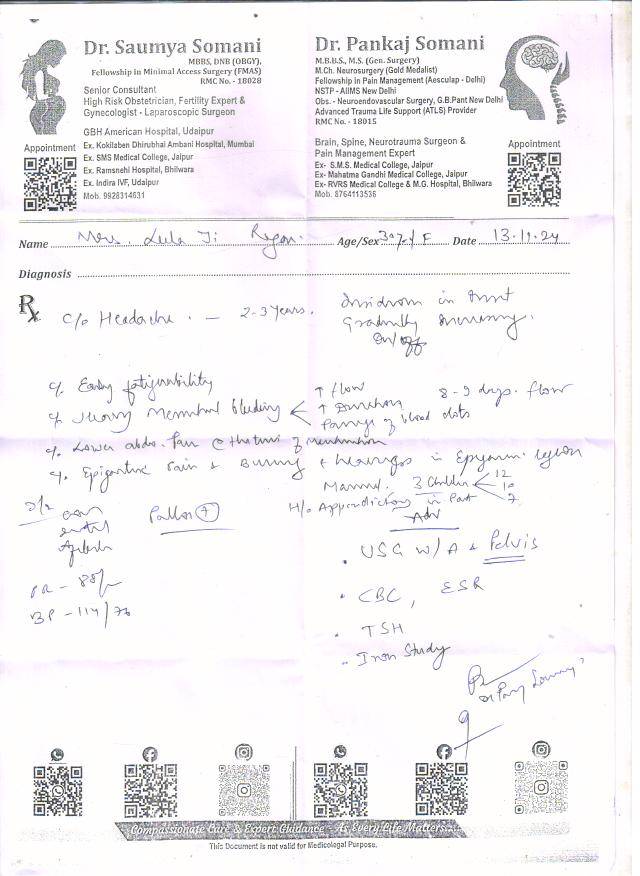 Dr. Saumya Somani
MBBS, DNB (OBGY),
Fellowship in Minimal Access Surgery (FMAS)
RMC No. - 18028
Senior Consultant
High Risk Obstetrician, Fertility Expert &
Gynecologist - Laparoscopic Surgeon
GBH American Hospital, Udaipur
Ex. Kokilaben Dhirubhai Ambani Hospital, Mumbai
Ex. SMS Medical College, Jaipur
Ex. Ramsnehi Hospital, Bhilwara
Ex. Indira IVF, Udaipur
Mob. 9928314631
Appointment
Dr. Pankaj Somani
M.B.B.S., M.S. (Gen. Surgery)
M.Ch. Neurosurgery (Gold Medalist)
Fellowship in Pain Management (Aesculap - Delhi)
NSTP - AIIMS New Delhi
Obs. - Neuroendovascular Surgery, G.B.Pant New Delhi
Advanced Trauma Life Support (ATLS) Provider
RMC No. - 18015
Brain, Spine, Neurotrauma Surgeon &
Pain Management Expert
Ex- S.M.S. Medical College, Jaipur
Ex- Mahatma Gandhi Medical College, Jaipur
Ex- RVRS Medical College & M.G. Hospital, Bhilwara
Mob. 8764113536
Appointment
Name Mrs. Leela Ji Age/Sex 30y/F Date 13.11.24
Diagnosis
Rx
c/o Headache. — 2-3 years.
Gradually increasing.
on/off
c/o Easy fatiguability
c/o Heavy Menstrual bleeding
↑ flow
↑ Duration
Passage of blood clots
8-9 days. flow
c/o Lower abdo. Pain @ the time of menstruation
c/o Epigastric Pain + Burning + in region
Married. 3 Children
12
10
7
H/o Appendectomy in Past
O/E
Pallor (+)
PR - 88/
BP - 114/70
Adv
USG W/A & Pelvis
CBC, ESR
TSH
Iron Study
Compassionate Care & Expert Guidance As Every Life Matters...
This Document is not valid for Medicolegal Purpose.